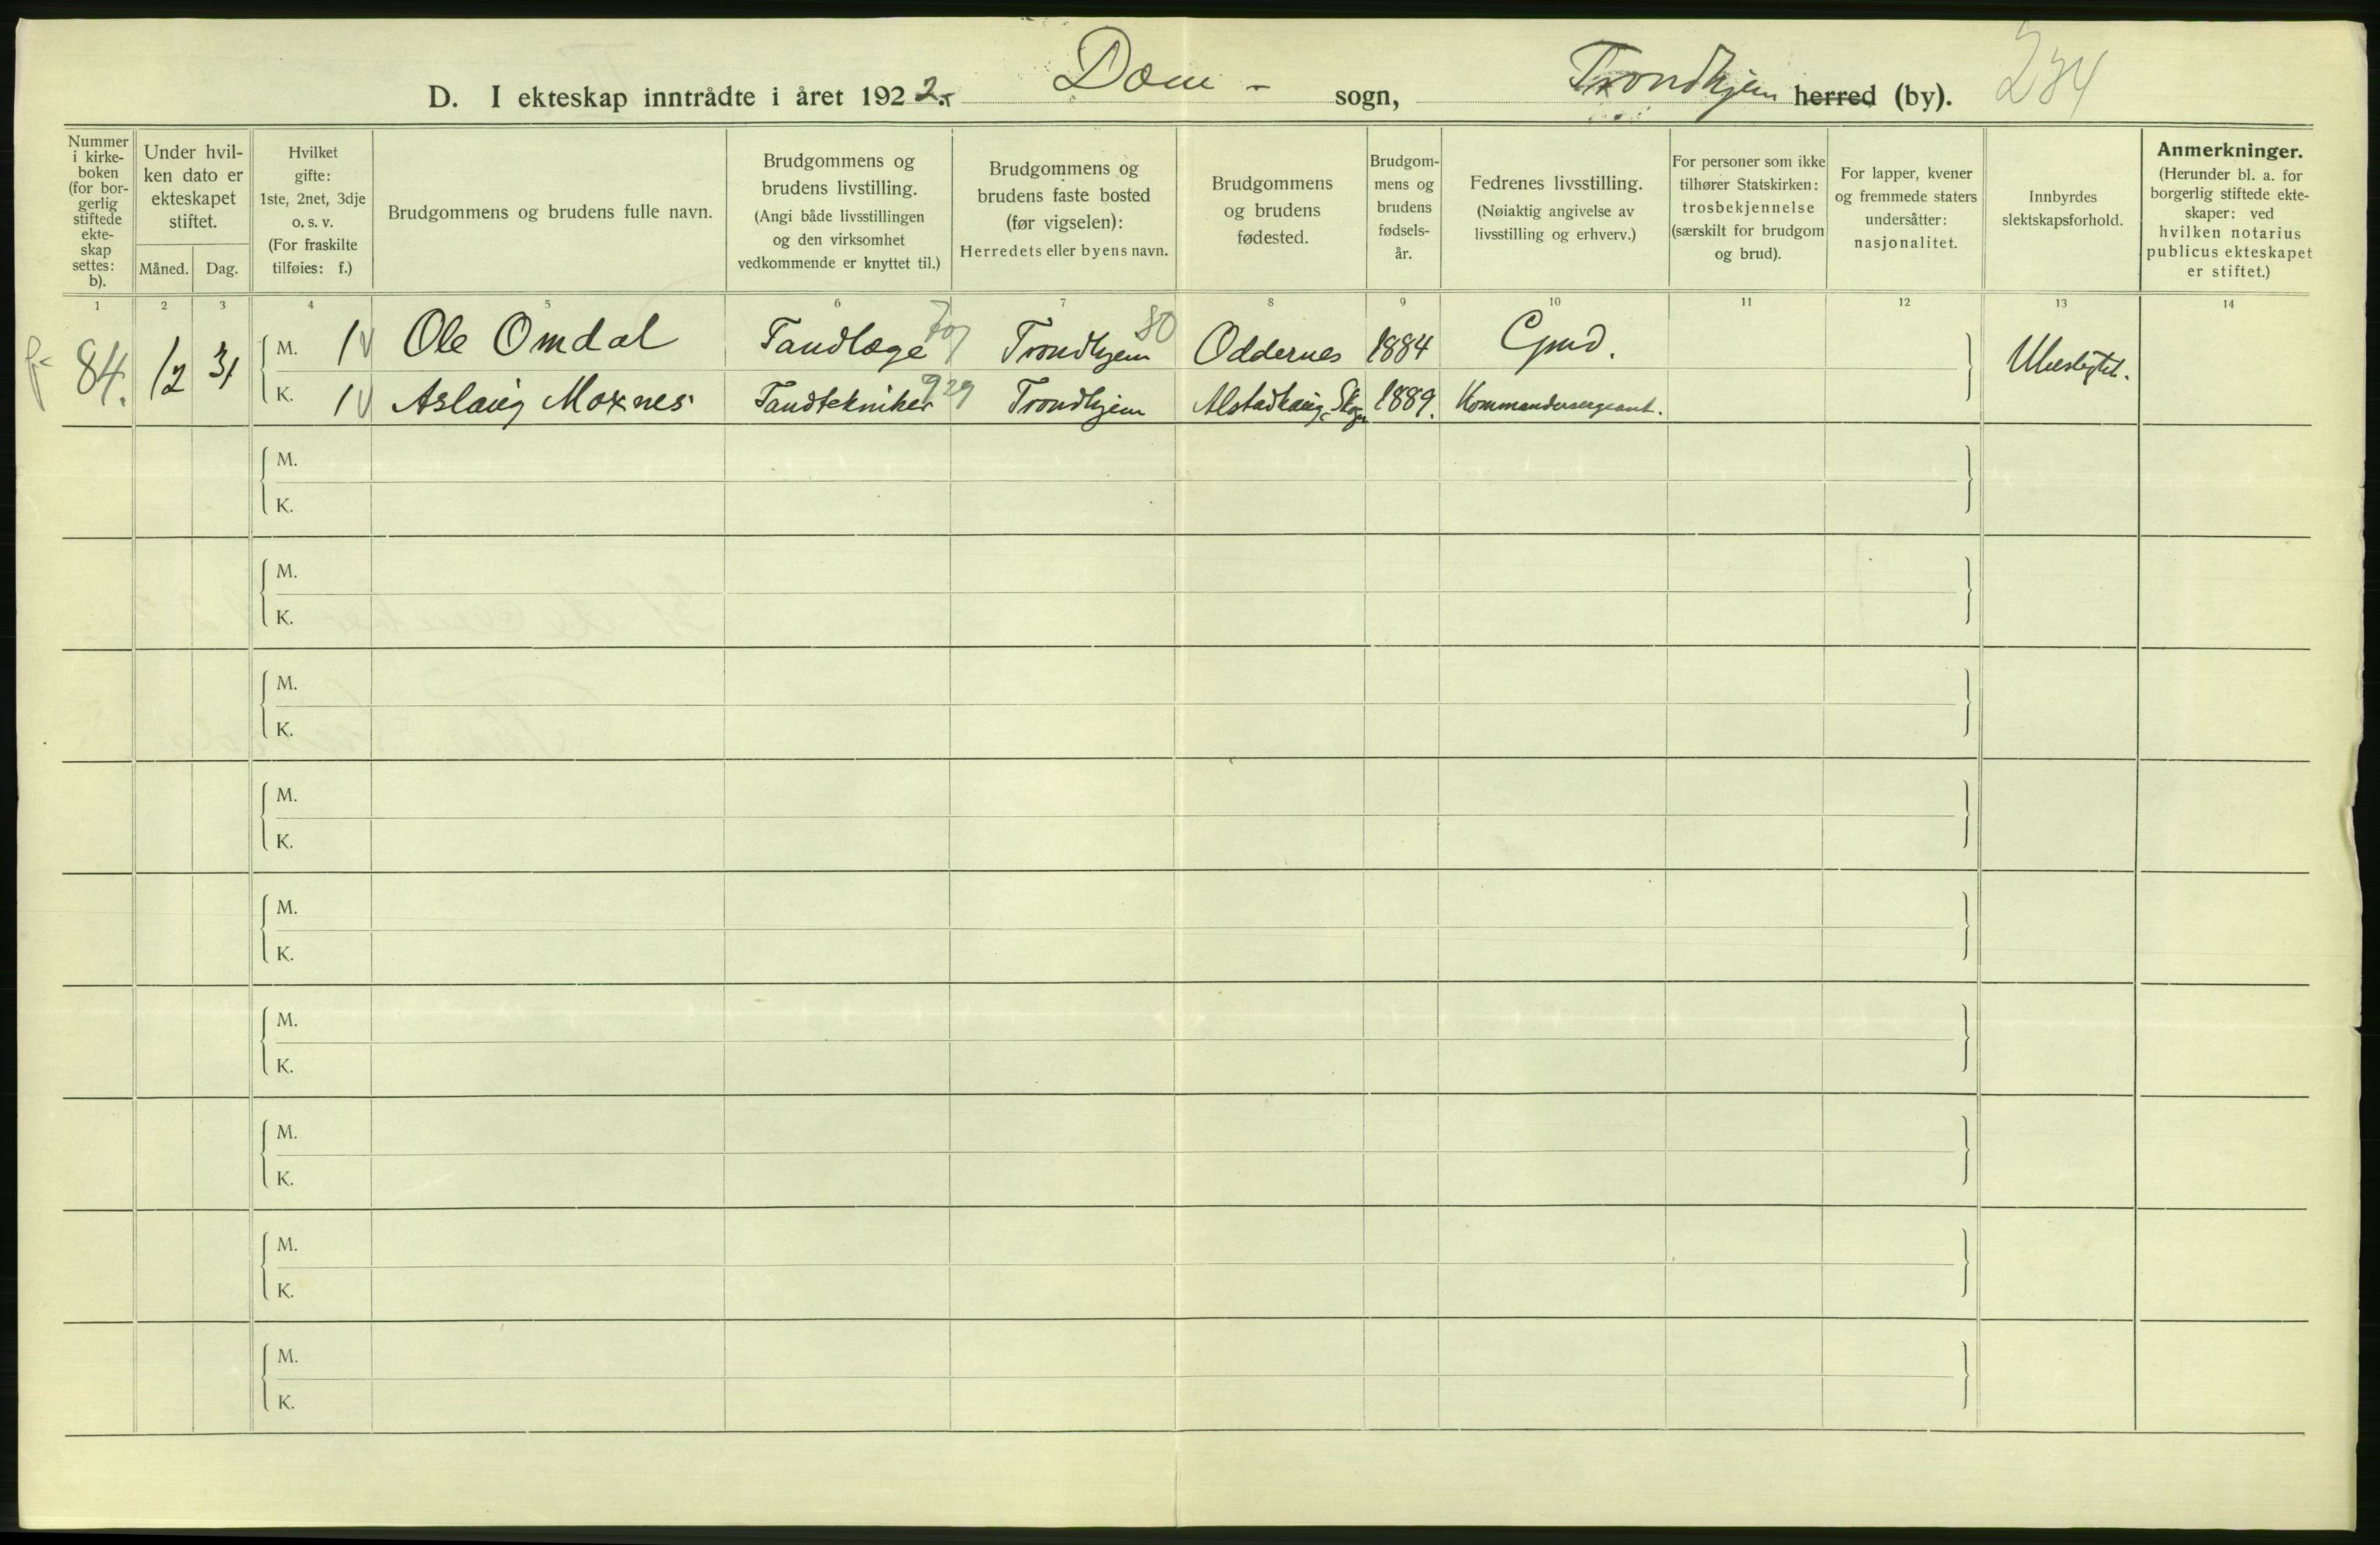 D. I ekteskap inntrådte i året 1922. Dom - sogn, Trondhjem herred (by). 284
Nummer
i kirke-
boken
(for bor-
gerlig
stiftede
ekte-
skap
settes:
b).
Under hvil-
ken dato er
ekteskapet
stiftet.
Måned. Dag.
Hvilket
gifte:
1ste, 2net, 3dje
o. s. v.
(For fraskilte
tilføies: f.)
Brudgommens og brudens fulle navn.
Brudgommens og
brudens livstilling.
(Angi både livsstillingen
og den virksomhet
vedkommende er knyttet til.)
Brudgommens og
brudens faste bosted
(før vigselen):
Herredets eller byens navn.
Brudgommens
og brudens
fødested.
Brudgom-
mens og
brudens
fødsels-
år.
Fedrenes livsstilling.
(Nøiaktig angivelse av
livsstilling og erhverv.)
For personer som ikke
tilhører Statskirken:
trosbekjennelse
(særskilt for brudgom
og brud).
For lapper, kvener
og fremmede staters
undersåtter:
nasjonalitet.
Innbyrdes
slektskapsforhold.
Anmerkninger.
(Herunder bl. a. for
borgerlig stiftede ekte-
skaper: ved
hvilken notarius
publicus ekteskapet
er stiftet.)
1 2 3 4 5 6 7 8 9 10 11 12 13 14
84. 12 31 M. 1 Ole Omdal Tandlæge 707 Trondhjem 80 Oddernes 1884 Gmd. Ubeslægtet.
K. 1 Aslaug Moxnes Tandtekniker 929 Trondhjem Alstadhaug, Skogn 1889. Kommandersergeant.
M.
K.
M.
K.
M.
K.
M.
K.
M.
K.
M.
K.
M.
K.
M.
K.
M.
K.